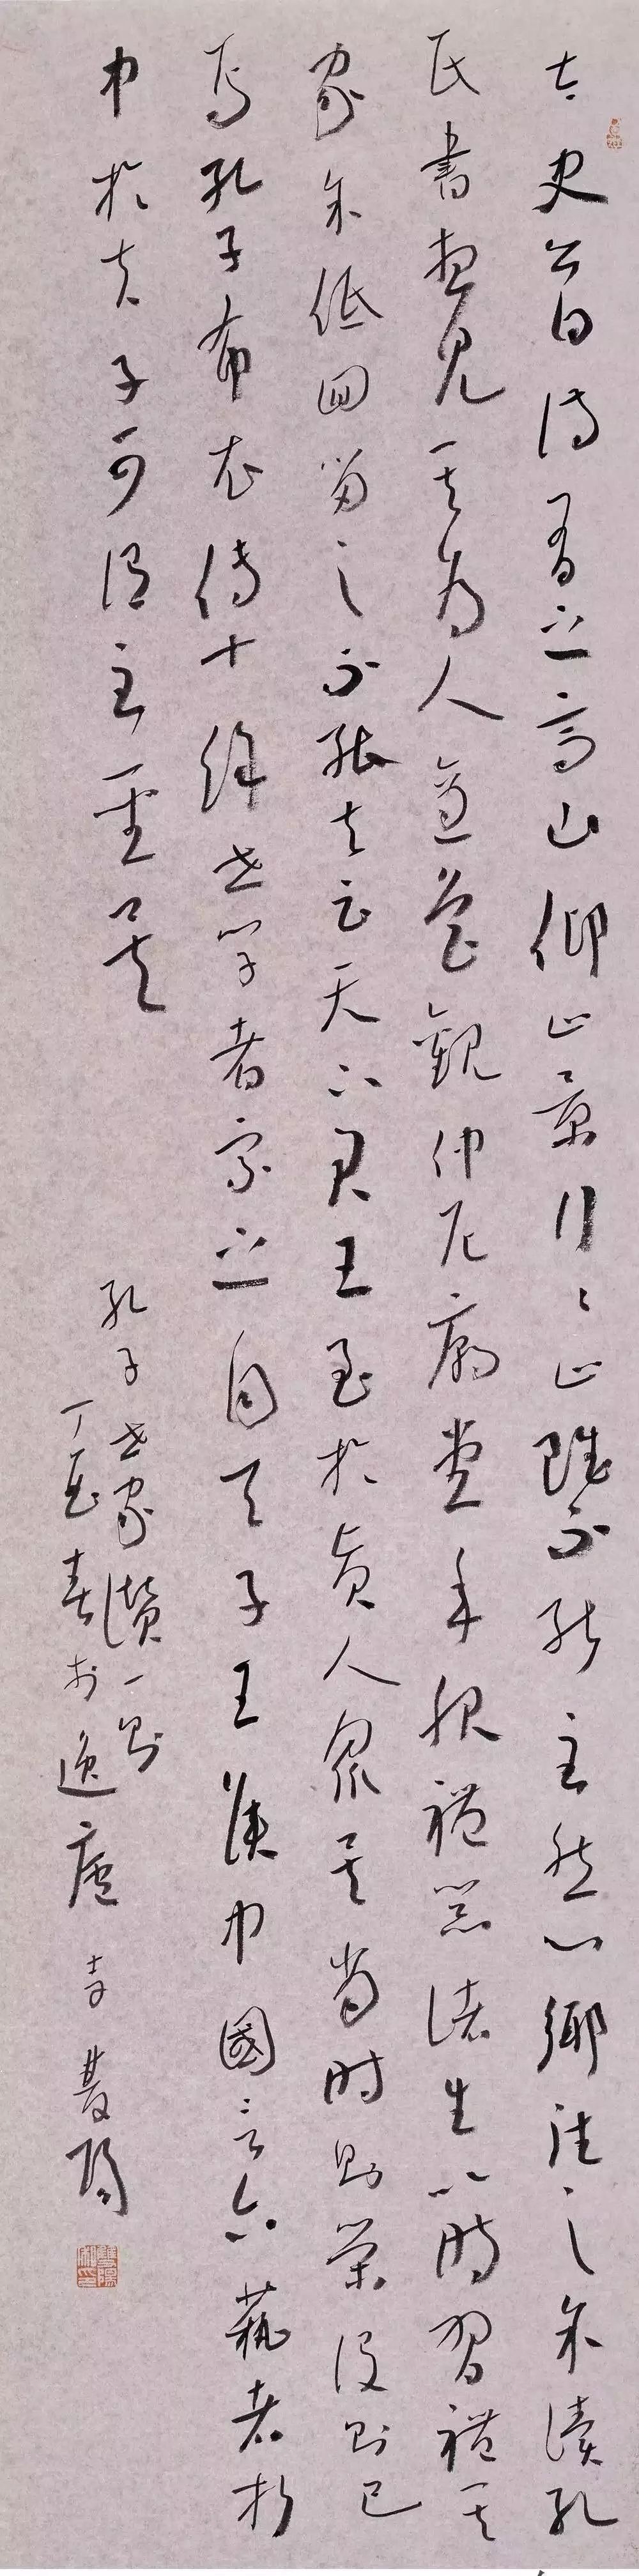 太史公曰诗有之高山仰止景行〻止雖不能至然心鄉往之余讀孔
氏書想見其為人適魯觀仲尼廟堂車服禮器諸生以時習禮其
家余低回留之不能去云天下君王至於賢人眾矣當時則榮没則已
焉孔子布衣傳十餘世學者宗之自天子王侯中國言六藝者折
中於夫子可謂至聖矣
孔子世家讚一則
丁酉春於逸廬